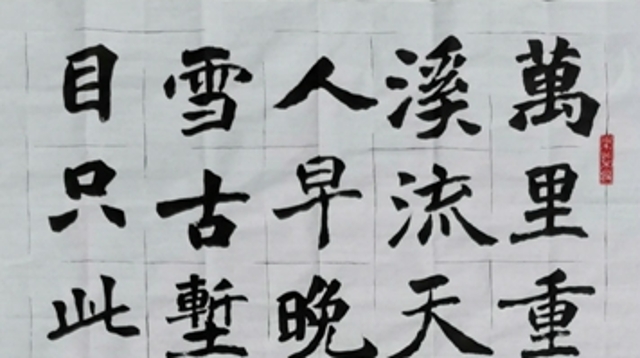 萬里重
溪流天
人早晚
雪古塹
目只此